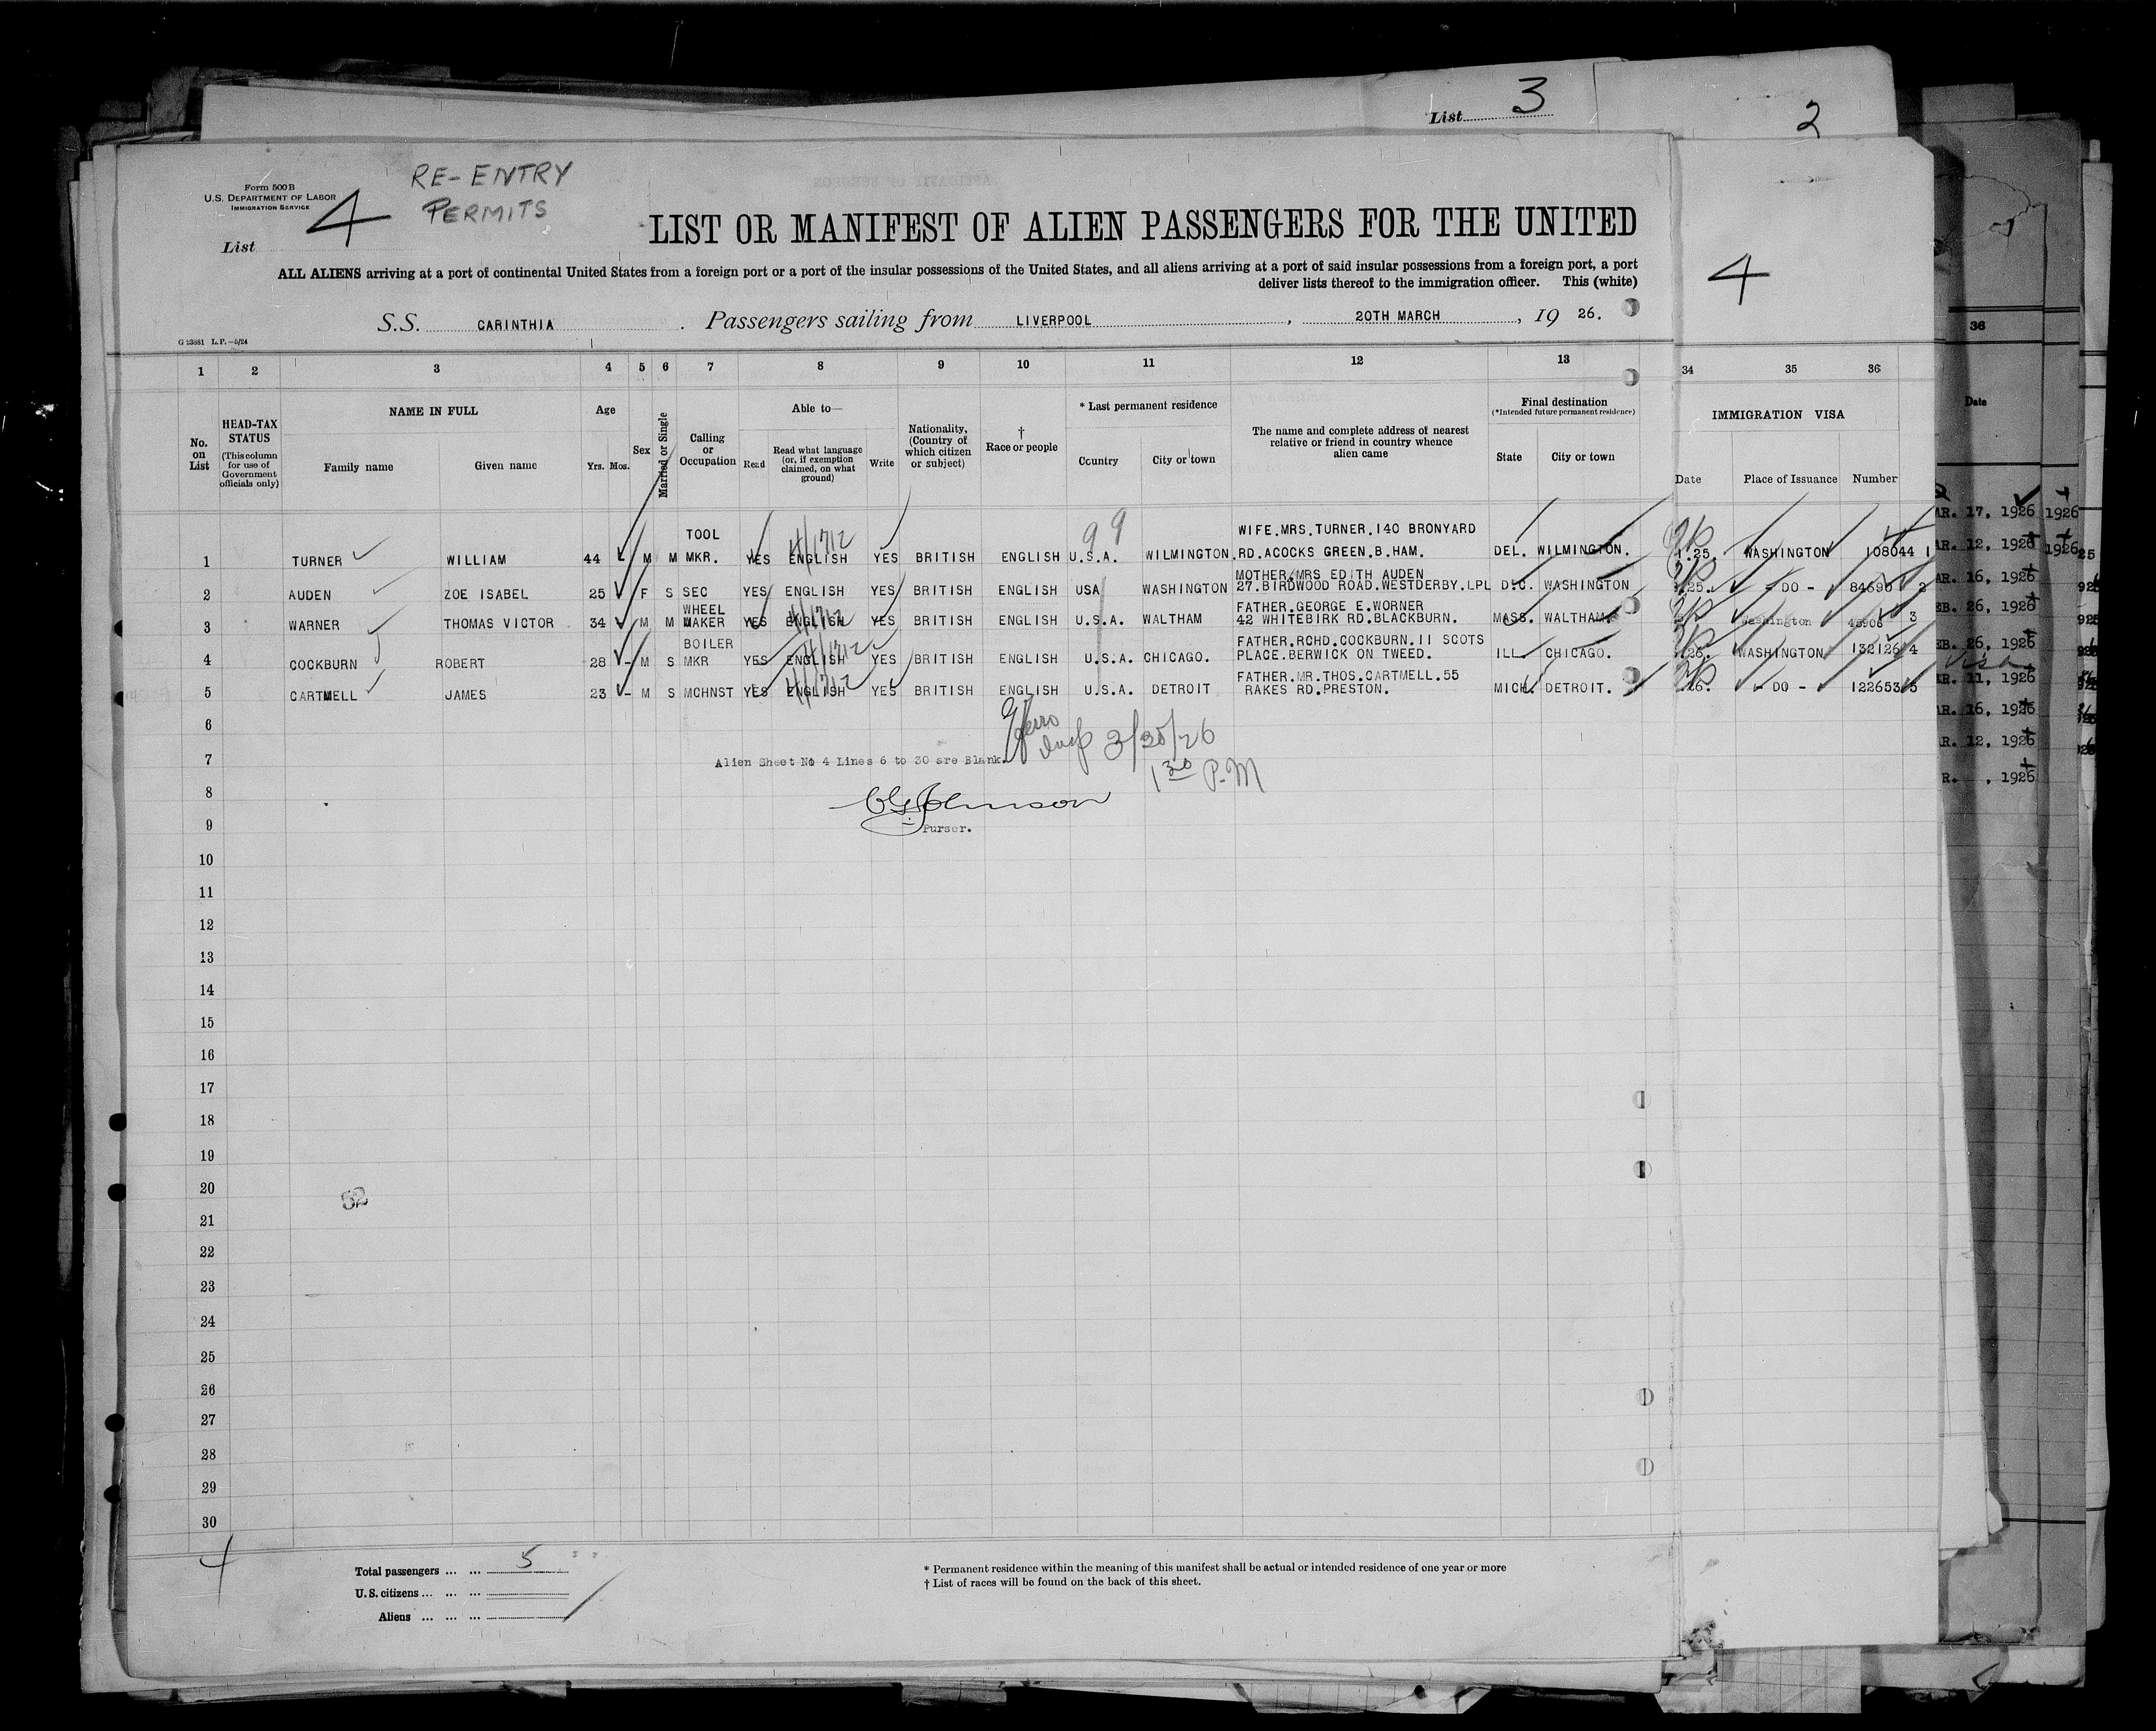 List 3
2
Form 500 B
U.S. DEPARTMENT OF LABOR
IMMIGRATION SERVICE
RE-ENTRY
PERMITS
List 4
LIST OR MANIFEST OF ALIEN PASSENGERS FOR THE UNITED
ALL ALIENS arriving at a port of continental United States from a foreign port or a port of the insular possessions of the United States, and all aliens arriving at a port of said insular possessions from a foreign port, a port
deliver lists thereof to the immigration officer. This (white)
4
S.S. CARINTHIA . Passengers sailing from LIVERPOOL , 20TH MARCH , 19 26.
G 23881 L.P.—5/24
1 2 3 4 5 6 7 8 9 10 11 12 13 34 35 36
36
No. on List
HEAD-TAX STATUS
(This column for use of Government officials only)
NAME IN FULL
Family name Given name
Age
Yrs. Mos.
Sex
Married or Single
Calling or Occupation
Able to—
Read
Read what language (or, if exemption claimed, on what ground)
Write
Nationality, (Country of which citizen or subject)
†
Race or people
* Last permanent residence
Country City or town
The name and complete address of nearest relative or friend in country whence alien came
Final destination
(*Intended future permanent residence)
State City or town
IMMIGRATION VISA
Date Place of Issuance Number
Date
99
1 TURNER WILLIAM 44 M M TOOL MKR. YES ENGLISH YES BRITISH ENGLISH U.S.A. WILMINGTON. WIFE.MRS.TURNER.140 BRONYARD RD.ACOCKS GREEN.B.HAM. DEL. WILMINGTON. WASHINGTON 108044 1
2 AUDEN ZOE ISABEL 25 F S SEC YES ENGLISH YES BRITISH ENGLISH USA WASHINGTON MOTHER.MRS EDITH AUDEN 27.BIRDWOOD ROAD.WESTDERBY.LPL D.C. WASHINGTON - DO - 84690 2
3 WARNER THOMAS VICTOR 34 - M M WHEEL MAKER YES ENGLISH YES BRITISH ENGLISH U.S.A. WALTHAM FATHER.GEORGE E.WORNER 42 WHITEBIRK RD.BLACKBURN. MASS. WALTHAM. Washington 45906 3
4 COCKBURN ROBERT 28 - M S BOILER MKR YES ENGLISH YES BRITISH ENGLISH U.S.A. CHICAGO. FATHER.RCHD.COCKBURN.11 SCOTS PLACE.BERWICK ON TWEED. ILL. CHICAGO. WASHINGTON 132126 4
5 CARTMELL JAMES 23 - M S MCHNST YES ENGLISH YES BRITISH ENGLISH U.S.A. DETROIT FATHER.MR.THOS.CARTMELL.55 RAKES RD.PRESTON. MICH. DETROIT. - DO - 122653 5
AR. 17, 1926
AR. 12, 1926
AR. 16, 1926
EB. 26, 1926
EB. 26, 1926
Visa
AR. 11, 1926
AR. 16, 1926
AR. 12, 1926
R. , 1926
1926
1926
6
Insp 3/30/26
1 30 P.M
7 Alien Sheet No 4 Lines 6 to 30 are Blank.
8 Johnson
9 Purser.
10
11
12
13
14
15
16
17
18
19
20
52
21
22
23
24
25
26
27
28
29
30
4
Total passengers ... ... 5
U.S. citizens ... ... ...
Aliens ... ... ...
* Permanent residence within the meaning of this manifest shall be actual or intended residence of one year or more
† List of races will be found on the back of this sheet.